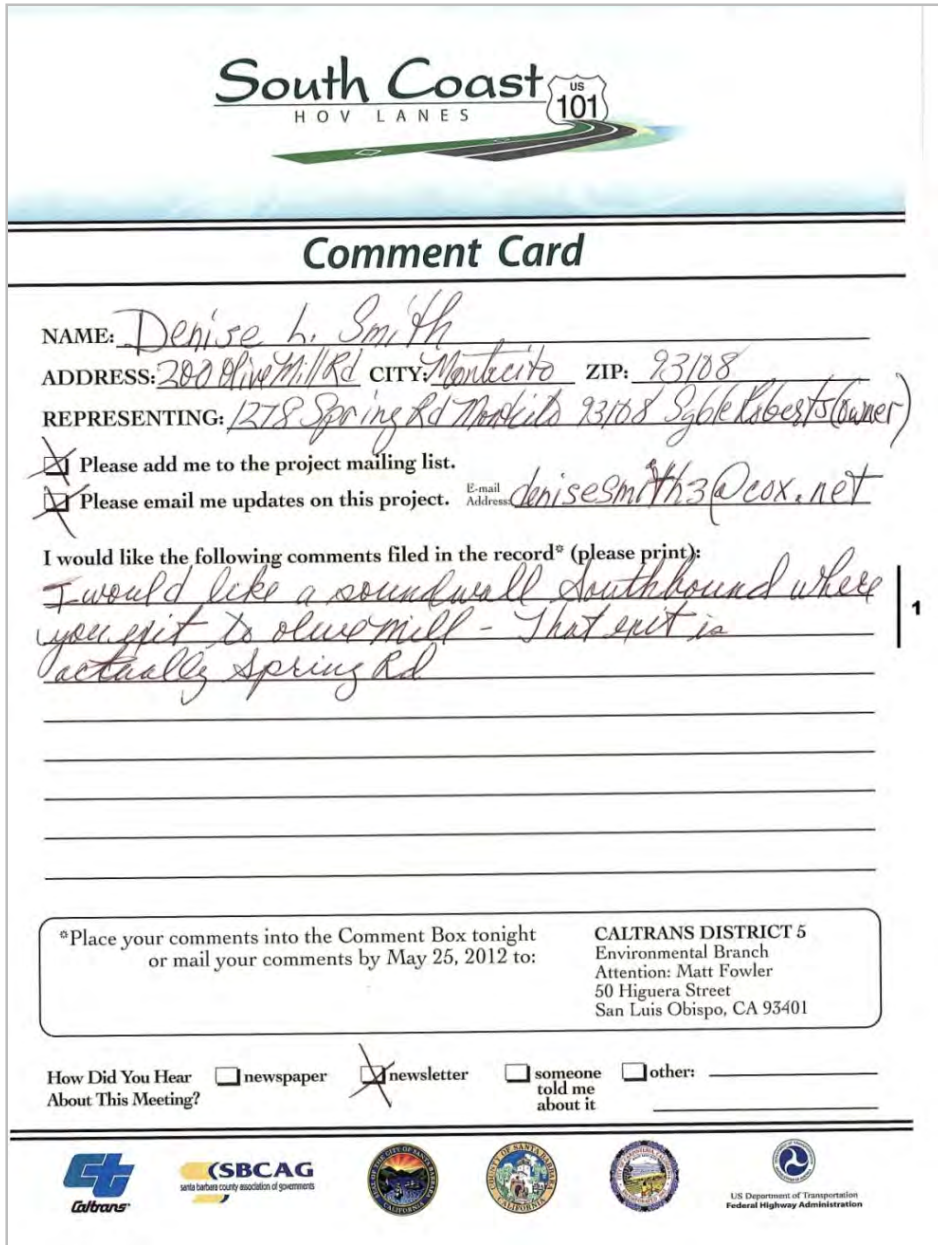 South Coast
US
101
HOV LANES
Comment Card
NAME: Denise L. Smith
ADDRESS: 200 Olive Mill Rd CITY: Montecito ZIP: 93108
REPRESENTING: 1278 Spring Rd Montecito 93108 Sable Roberts (owner)
Please add me to the project mailing list.
Please email me updates on this project. E-mail Address: denisesmith3@cox.net
I would like the following comments filed in the record* (please print):
I would like a soundwall Southbound where
you exit to olive mill - That exit is
actually Spring Rd
1
*Place your comments into the Comment Box tonight
or mail your comments by May 25, 2012 to:
CALTRANS DISTRICT 5
Environmental Branch
Attention: Matt Fowler
50 Higuera Street
San Luis Obispo, CA 93401
How Did You Hear About This Meeting? newspaper newsletter someone told me about it other:
Caltrans
SBCAG
santa barbara county association of governments
COUNTY OF SANTA BARBARA
CALIFORNIA
CALIFORNIA
US Department of Transportation
Federal Highway Administration